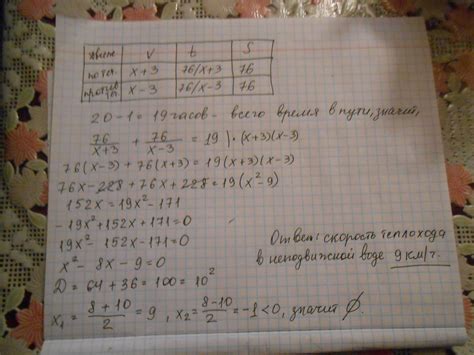 V t S
по теч. x+3 76/x+3 76
против теч. x-3 76/x-3 76
20-1=19 часов - всего время в пути, значит,
76/x+3 + 76/x-3 = 19 | ·(x+3)(x-3)
76(x-3)+76(x+3)=19(x+3)(x-3)
76x-228+76x+228=19(x²-9)
152x=19x²-171
-19x²+152x+171=0
19x² 152x-171=0
x²- 8x-9=0
D=64+36=100=10²
x₁=8+10/2=9, x₂=8-10/2=-1<0, значит ∅.
Ответ: скорость теплохода
в неподвижной воде 9 км/ч.